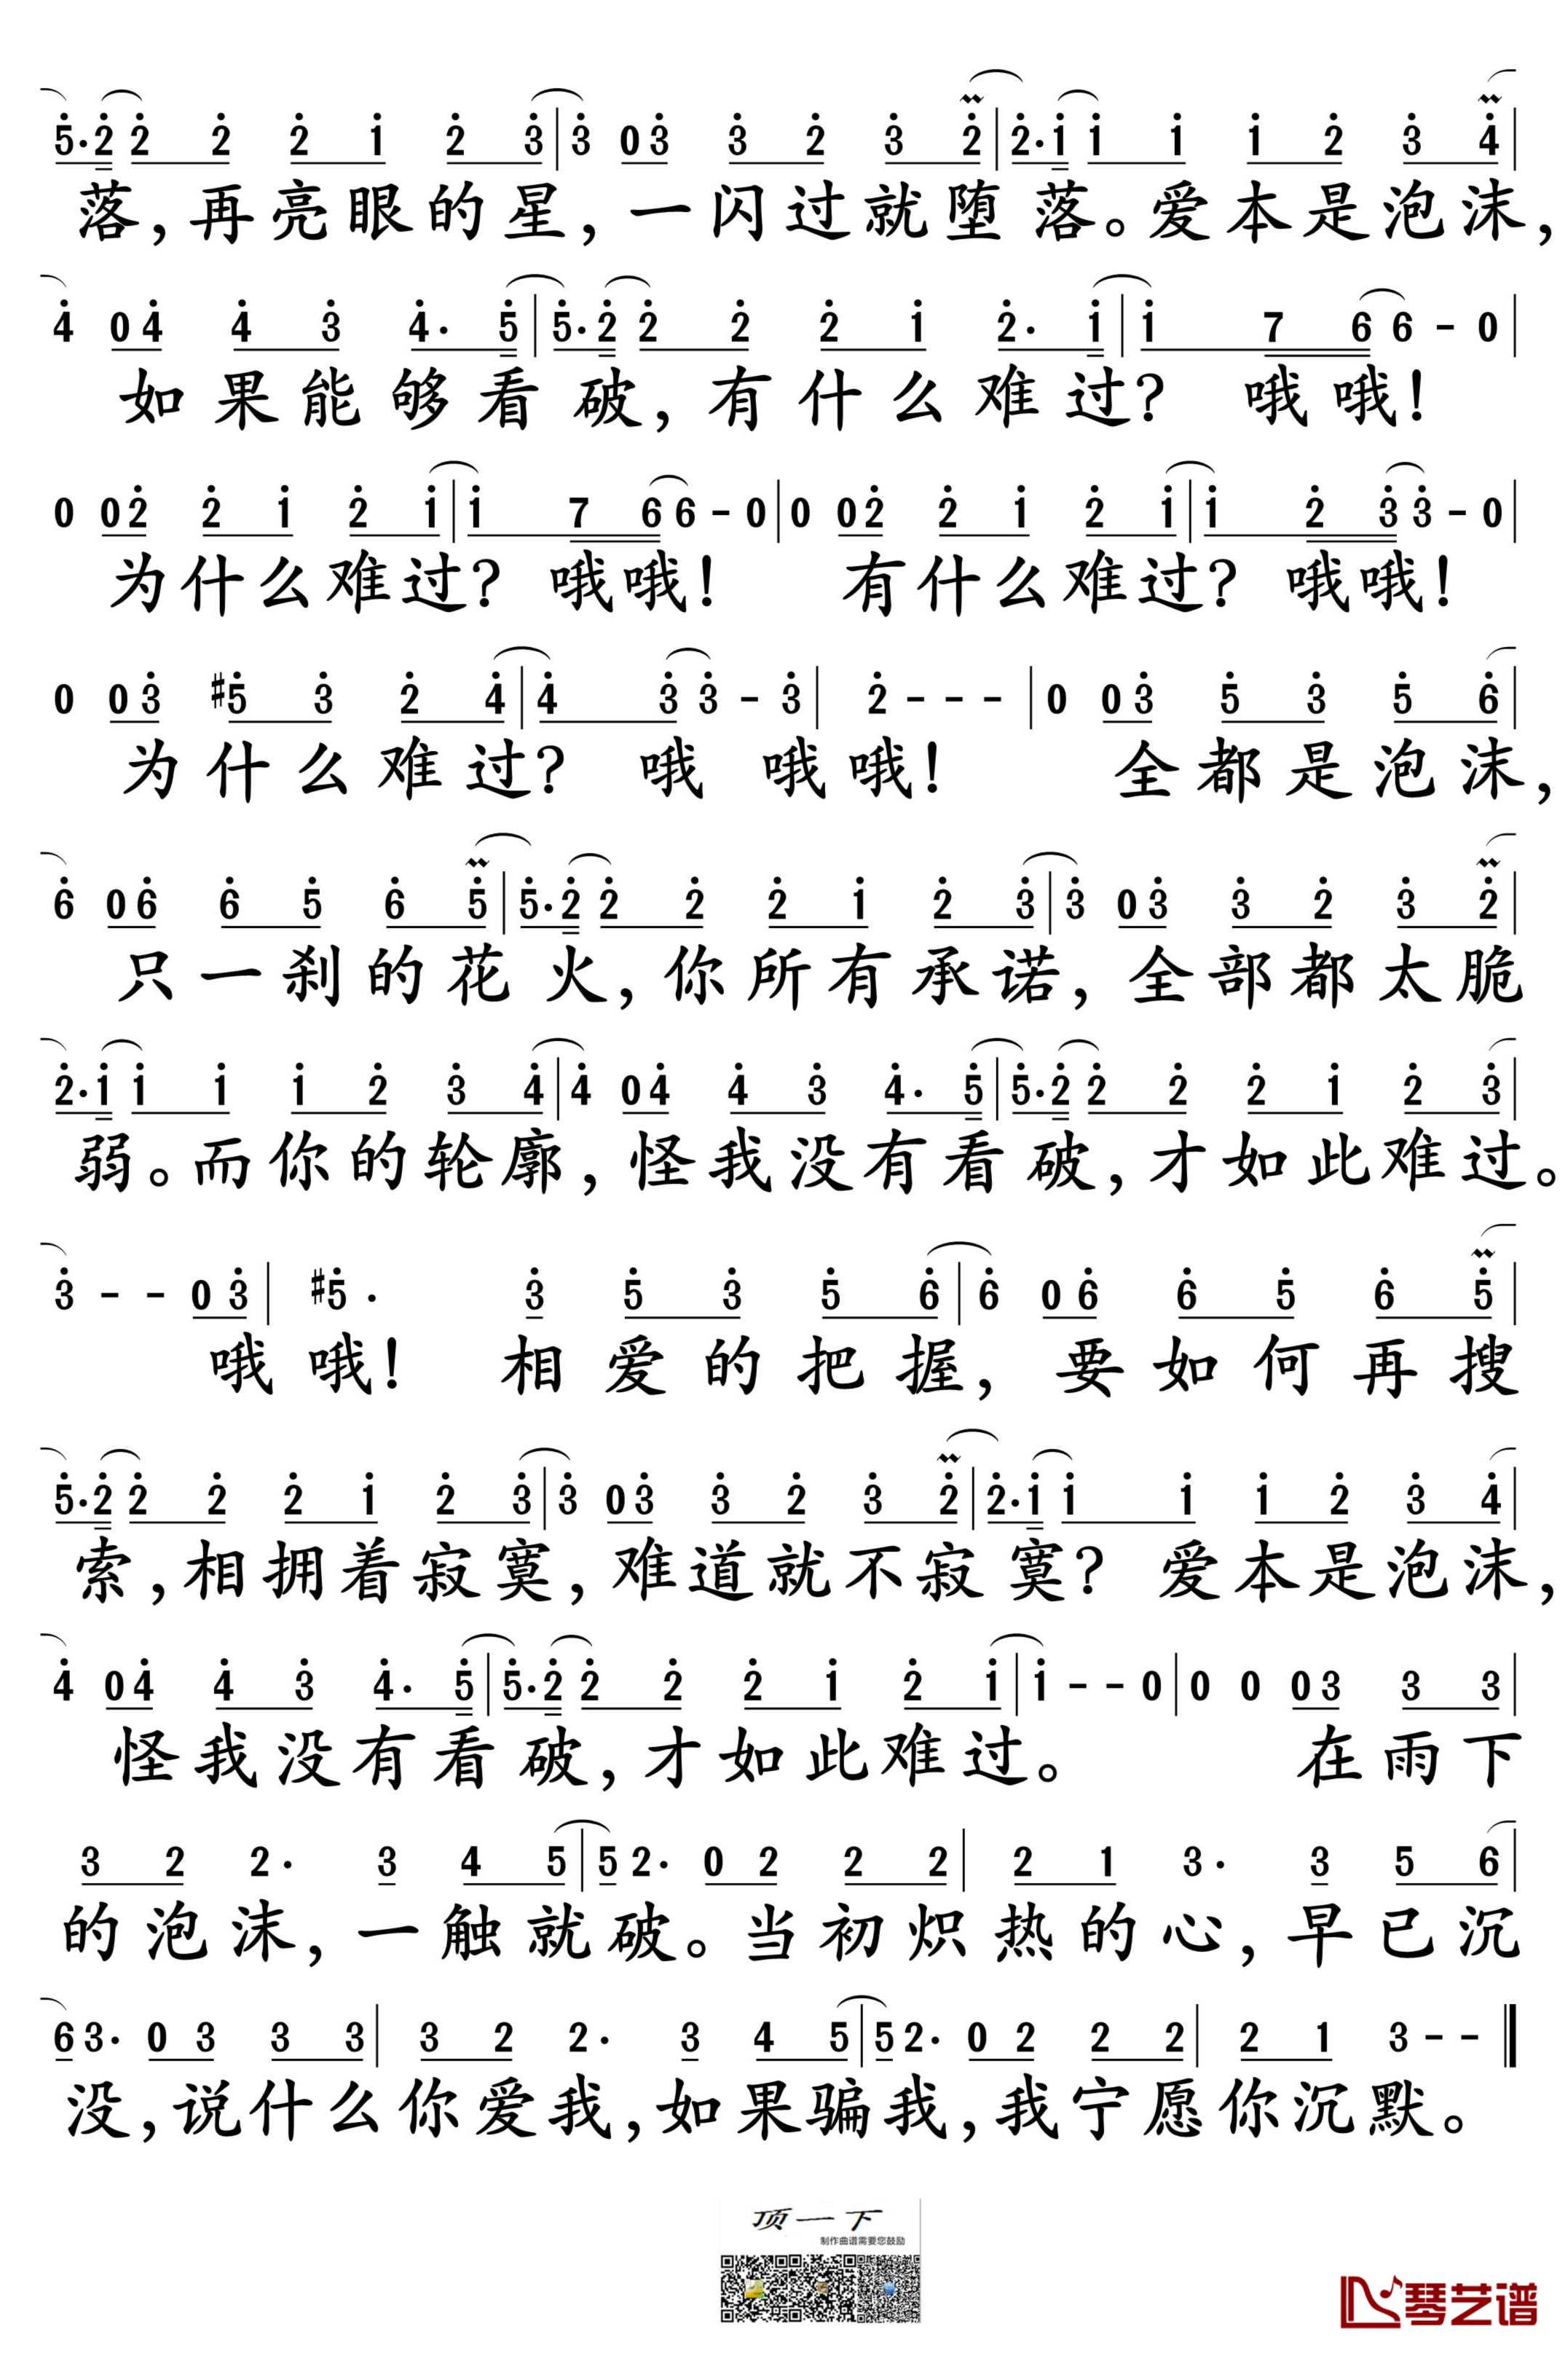 5·2 2 2 2 1 2 3|3 03 3 2 3 2|2·1 1 1 1 2 3 4|
落，再亮眼的星，一闪过就堕落。爱本是泡沫，
4 04 4 3 4· 5|5·2 2 2 2 1 2· 1|1 7 6 6 - 0|
如果能够看破，有什么难过？哦哦！
0 02 2 1 2 1|1 7 6 6 - 0|0 02 2 1 2 1|1 2 3 3 - 0|
为什么难过？哦哦！有什么难过？哦哦！
0 03 #5 3 2 4|4 3 3 - 3|2 - - -|0 03 5 3 5 6|
为什么难过？哦哦哦！全都是泡沫，
6 06 6 5 6 5|5·2 2 2 2 1 2 3|3 03 3 2 3 2|
只一刹的花火，你所有承诺，全部都太脆
2·1 1 1 1 2 3 4|4 04 4 3 4· 5|5·2 2 2 2 1 2 3|
弱。而你的轮廓，怪我没有看破，才如此难过。
3 - - 03|#5· 3 5 3 5 6|6 06 6 5 6 5|
哦哦！相爱的把握，要如何再搜
5·2 2 2 2 1 2 3|3 03 3 2 3 2|2·1 1 1 1 2 3 4|
索，相拥着寂寞，难道就不寂寞？爱本是泡沫，
4 04 4 3 4· 5|5·2 2 2 2 1 2 1|1 - - 0|0 0 03 3 3|
怪我没有看破，才如此难过。在雨下
3 2 2· 3 4 5|5 2· 0 2 2 2|2 1 3· 3 5 6|
的泡沫，一触就破。当初炽热的心，早已沉
6 3· 0 3 3 3|3 2 2· 3 4 5|5 2· 0 2 2 2|2 1 3 - -
没，说什么你爱我，如果骗我，我宁愿你沉默。
顶一下
制作曲谱需要您鼓励
琴艺谱